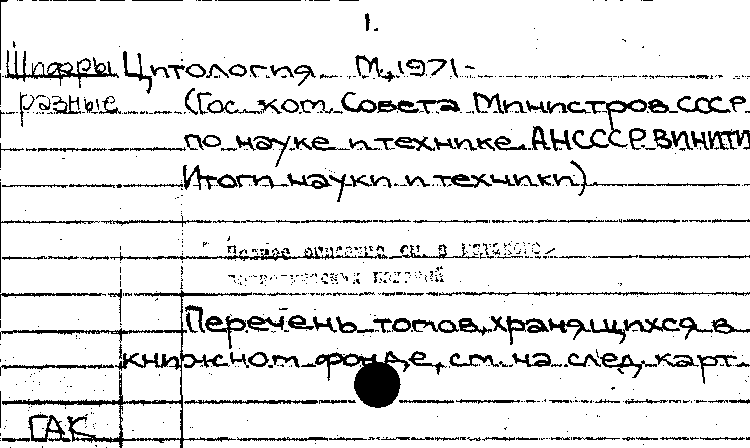 1.
Шифры Цитология. М., 1971-
разные (Гос. ком. Совета Министров СССР
по науке и технике. АН СССР. ВИНИТИ
Итоги науки и техники).
Полное описание см. в каталоге
периодических изданий
Перечень томов, хранящихся в
книжном фонде, см. на след. карт.
ГАК